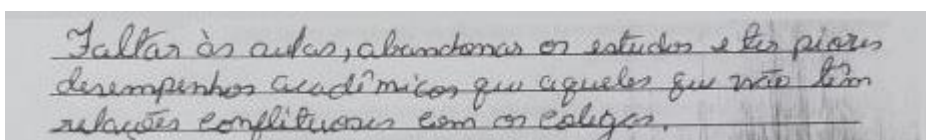 Faltar às aulas, abandonar os estudos e ter piores
desempenhos acadêmicos que aqueles que não têm
relações conflituosas com os colegas.